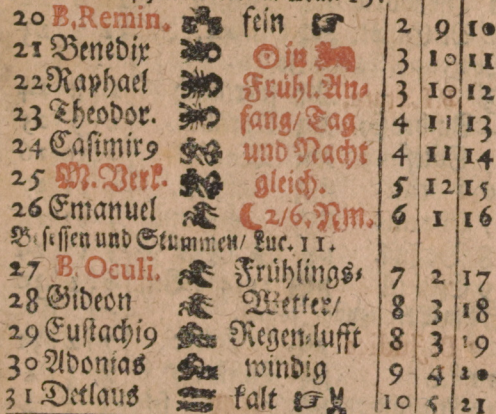 20 B. Remin. fein ☞ 2 9 10
21 Benedix ☉ in 3 10 11
22 Raphael Frühl. An⸗ 3 10 12
23 Theodor. fang/ Tag 4 11 13
24 Casimir9 und Nacht 4 11 14
25 M. Verk. gleich. 5 12 15
26 Emanuel ☾ 2/6. Nm. 6 1 16
Besessen und Stummen/ Luc. 11.
27 B. Oculi. Frühlings⸗ 7 2 17
28 Gideon Wetter/ 8 3 18
29 Eustachi9 Regen⸗lufft 8 3 19
30 Adonias windig 9 4 20
31 Detlaus kalt ☞ 10 5 21